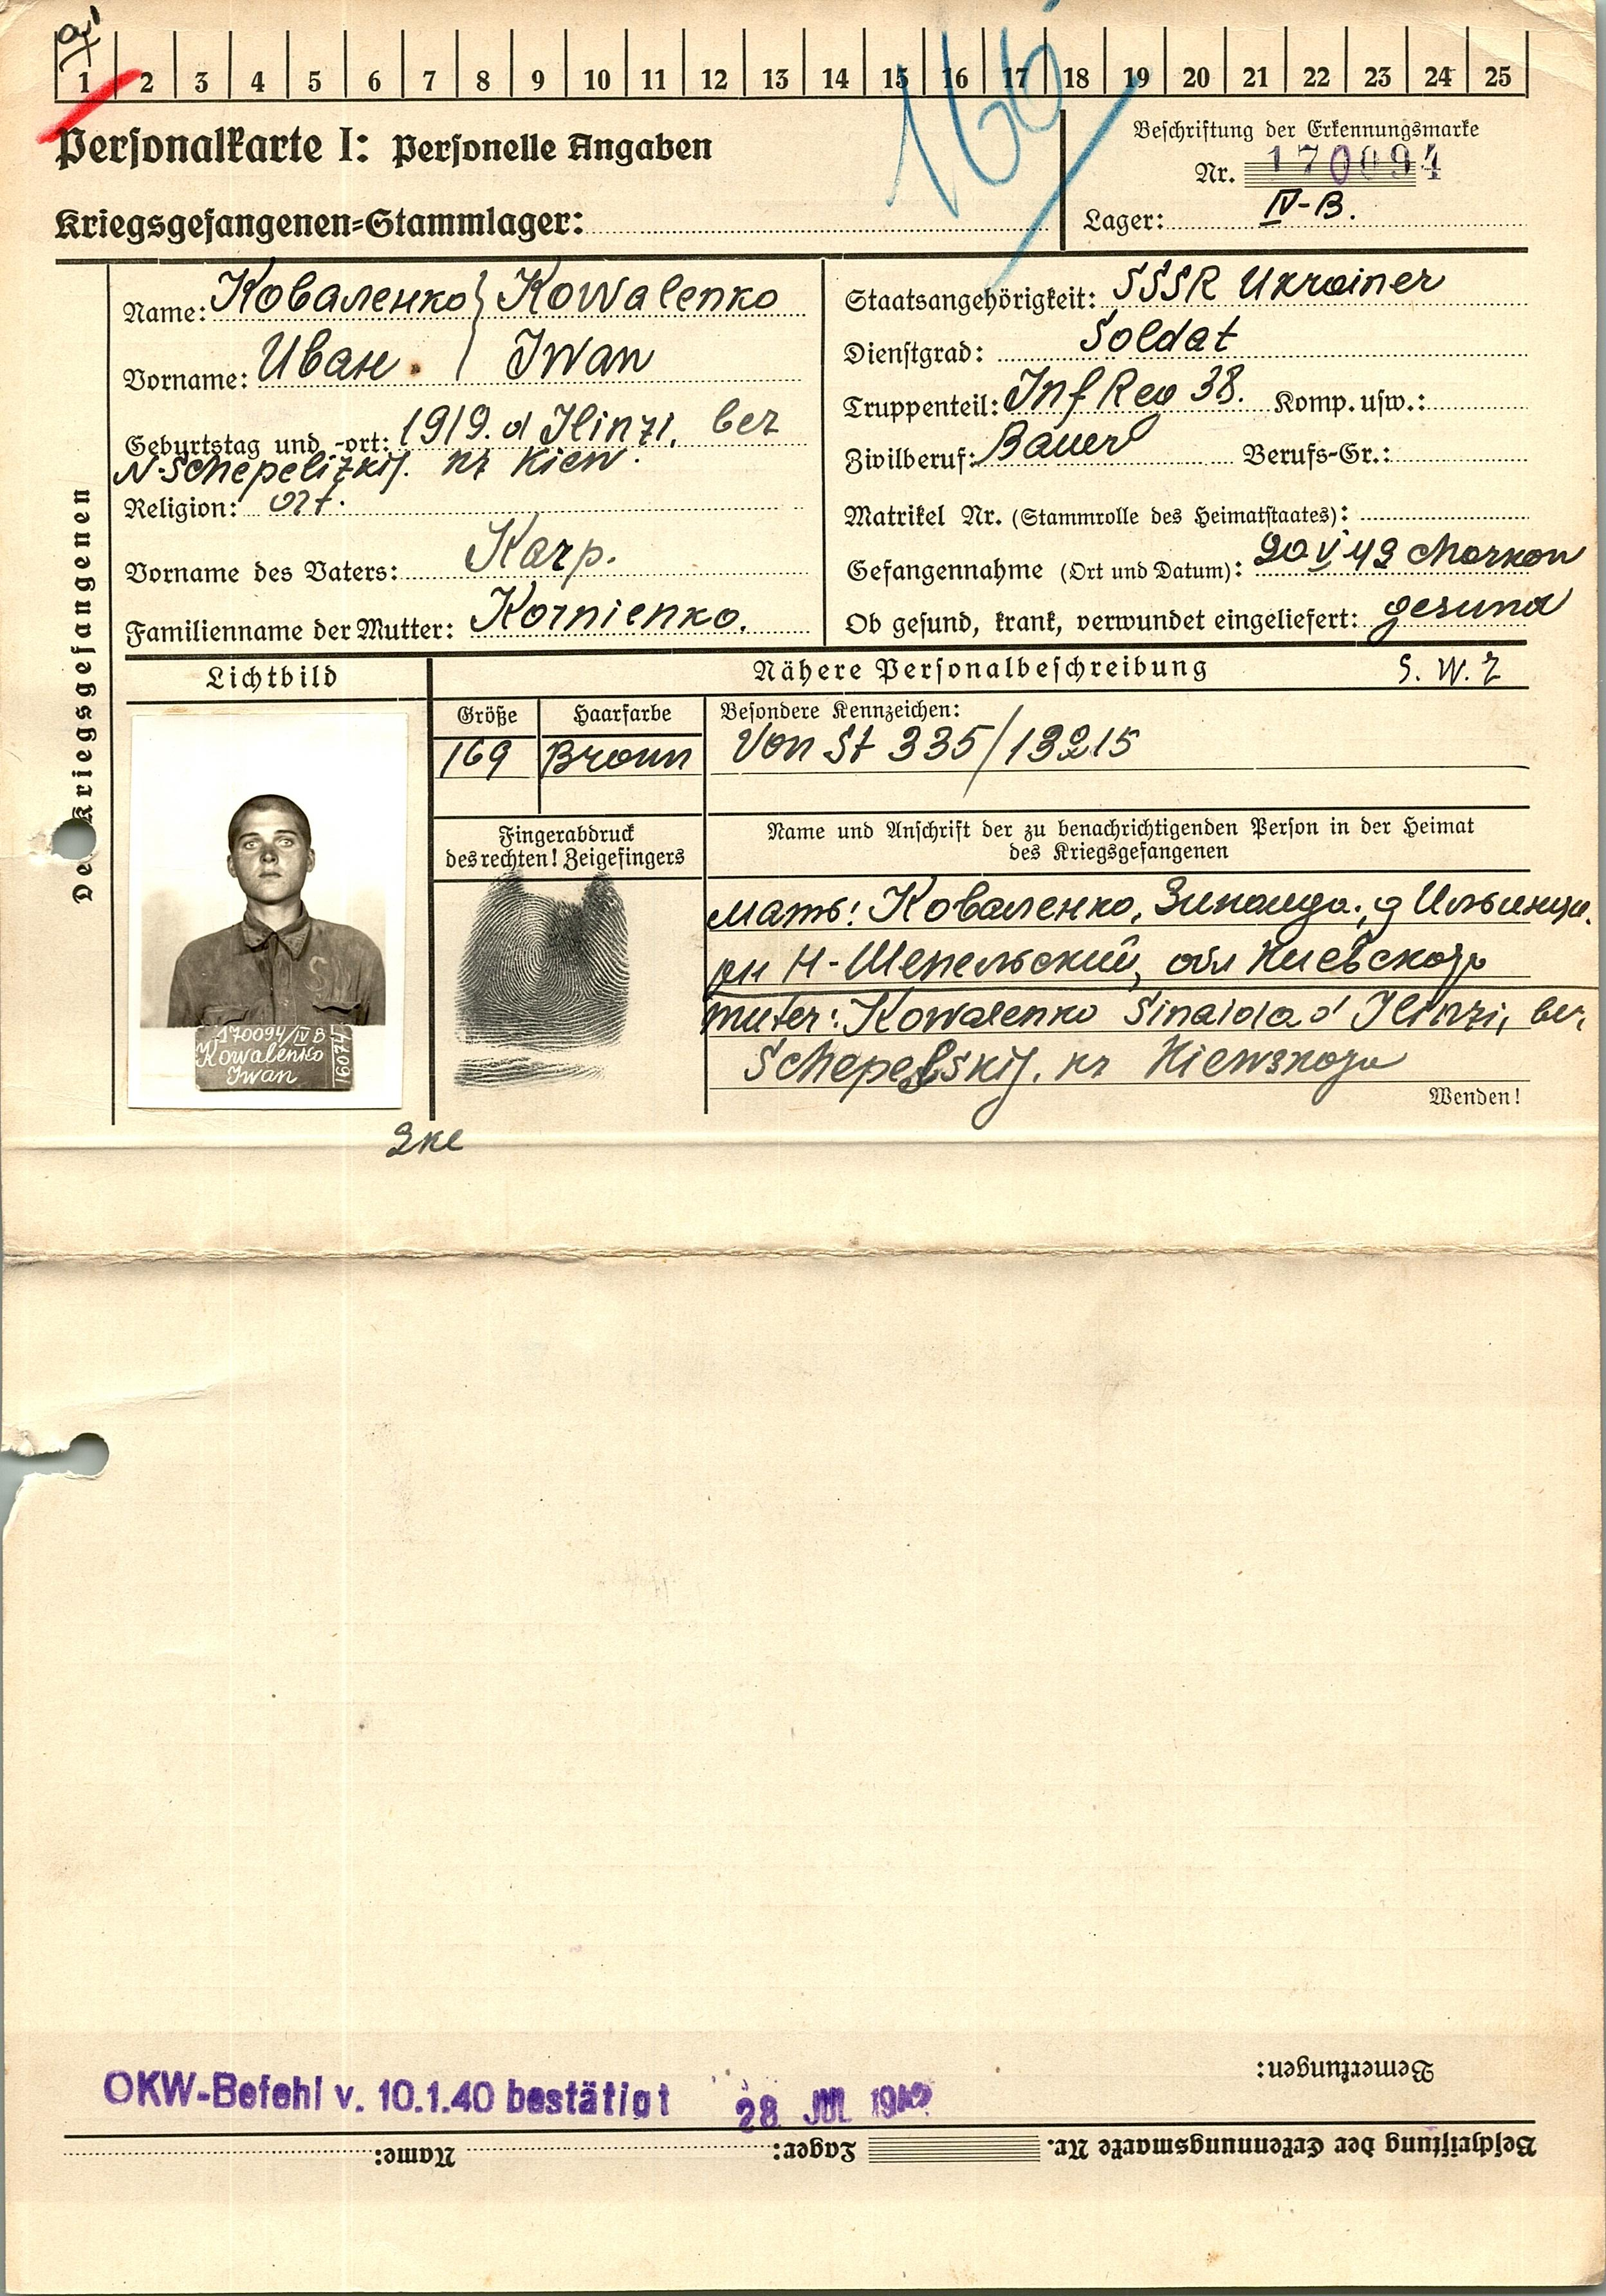 1 2 3 4 5 6 7 8 9 10 11 12 13 14 15 16 17 18 19 20 21 22 23 24 25
166
Personalkarte I: Personelle Angaben
Beschriftung der Erkennungsmarke
Nr. 170094
Kriegsgefangenen-Stammlager:
Lager: IV-B.
Des Kriegsgefangenen
Name: Коваленко} Kowalenko
Vorname: Иван. / Iwan
Geburtstag und -ort: 1919. d Ilinzi, bez
N-Schepelizkij. kr Kiew.
Religion: ort.
Vorname des Vaters: Karp.
Familienname der Mutter: Kornienko.
Staatsangehörigkeit: SSSR Ukrainer
Dienstgrad: Soldat
Truppenteil: Inf Reg 38. Komp. usw.:
Zivilberuf: Bauer Berufs-Gr.:
Matrikel Nr. (Stammrolle des Heimatstaates):
Gefangennahme (Ort und Datum): 20 V 42 Charkow
Ob gesund, krank, verwundet eingeliefert: gesund
Lichtbild
Nähere Personalbeschreibung S. W. Z
Größe Haarfarbe Besondere Kennzeichen:
169 Braun Von St 335/13215
Fingerabdruck
des rechten! Zeigefingers
Name und Anschrift der zu benachrichtigenden Person in der Heimat
des Kriegsgefangenen
мать: Коваленко, Зинаида., д Ильинцы.
рн Н-Шепельский, обл Киевского
Muter: Kowalenko Sinaida d Ilinzi, bez,
Schepelskij. kr Kiewskogo
Wenden!
170094/IV B
Kowalenko
Iwan
16074
OKW-Befehl v. 10.1.40 bestätigt 28. JUL 1942
Bemerkungen:
Beschriftung der Erkennungsmarke Nr. Lager: Name: